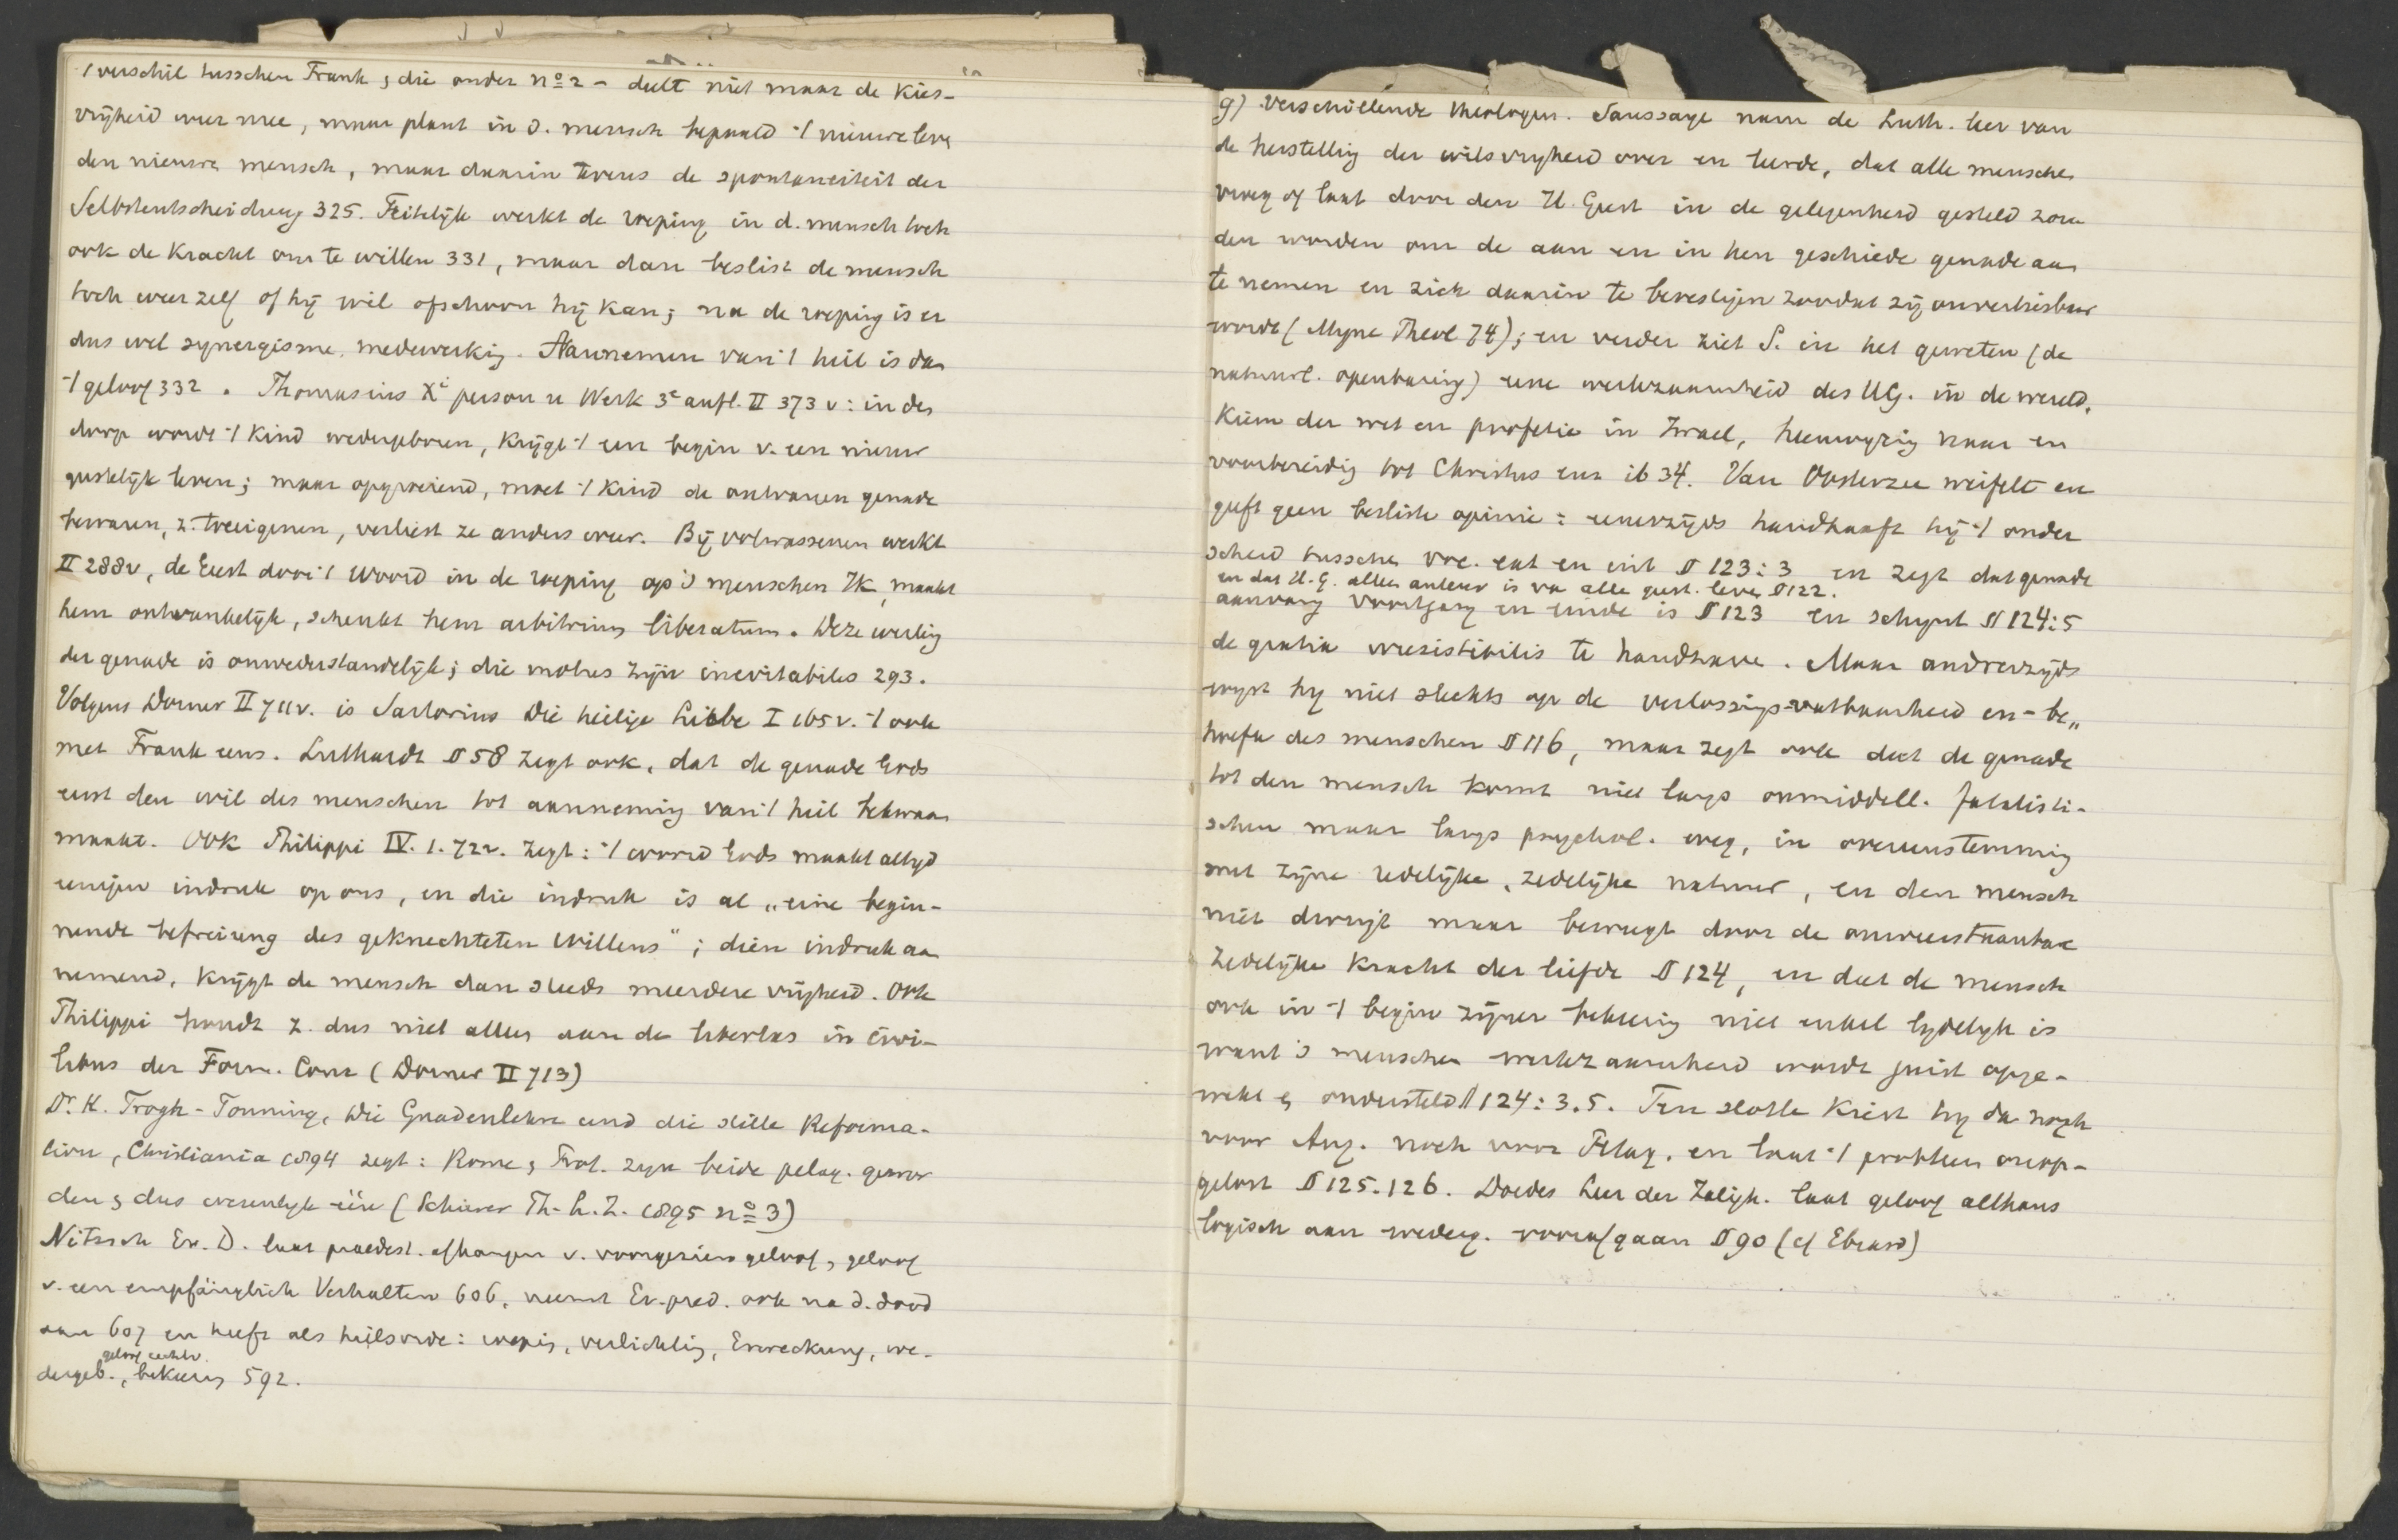 't verschil tusschen Frank & die onder no 2 - deelt niet maar de kies-
vrijheid weer mee, maar plant in d. mensch bepaald 't nieuwe leve
den nieuwe mensch, maar daarin tevens de spontaneiteit der
Selbstentscheidung 325. Feitelijk werkt de roeping in d. mensch toch
ook de kracht om te willen 331, maar dan beslist de mensch
toch weer zelf of hij wil ofschoon hij kan; na de roeping is er
dus wel synergisme, medewerkig. Aannemen van 't heil is dan
't geloof 332. Thomasius Xi person u Werk 3e aufl. II 373 v: in den
doop wordt 't kind wedergeboren, krijgt 't een begin v. een nieuw
geestelijk leven; maar opgroeiend, moet 't kind de ontvangen genade
bewaren, z. toeeigenen, verliest ze anders weer. Bij volwassenen werkt
II 288v, de Geest door 't Woord in de roeping op 's menschen Ik, maakt
hem ontvankelijk, schenkt hem arbitrium liberatum. Deze werkig
der genade is onwederstandelijk; die motus zijn inevitabiles 293.
Volgens Dorner II 711v. is Sartorius Die heilige Liebe I 165v. 't ook
met Frank eens. Luthardt § 58 zegt ook, dat de genade Gods
eerst den wil des menschen tot aannemig van 't heil bekwaam
maakt. Ook Philippi IV. 1. 72v. zegt: 't woord Gods maakt altijd
eenigen indruk op ons, en die indruk is al „eine begin-
nende befreiung des geknechteten Willens"; dien indruk aan
nemend, krijgt de mensch dan steeds meerdere vrijheid. Ook
Philippi houdt z. dus niet alleen aan de libertas in civi-
libus der Form. Conc (Dorner II 713)
Dr. K. Krogh-Tonning, Die Gnadenlehre und die stille Reforma-
tion, Christiania 1894 zegt: Rome & Prot. zijn beide pelag. gewor
den & dus eigenlijk één (Schürer Th. L. Z. 1895 no 3)
Nitzsch Ev. D. laat praedest. afhangen v. voorgezien geloof, geloof
v. een empfänglich Verhalten 606, neemt Ev. pred. ook na d. dood
aan 607 en heeft als heilsorde: roepig, verlichtig, Erweckung, we-
geloof
dergeb., bekeerig 592.
g) Verschillende theologen. Saussaye nam de Luth. leer van
de herstellig der wilsvrijheid over en leerde, dat alle mensche
vroeg of laat door den H. Geest in de gelegenheid gesteld zou
den worden om de aan en in hen geschiede genade aan
te nemen en zich daarin te bevestigen zoodat zij onverliesbaar
wordt (Mijne Theol 74); en verder ziet S. in het geweten (de
natuurl. openbaring) eene werkzaamheid des HG. in de wereld,
Kiem der wet en profetie in Israel, heenwijzig naar en
voorbereidig tot Christus enz ib 34. Van Oosterzee weifelt en
geeft geen besliste opinie: eenerzijds handhaaft hij 't onder
scheid tusschen voc. ext en int § 123:3 en zegt dat genade
en dat H. G. alleen auteur is va alle geest. leve § 122.
aanvang voortgang en einde is § 123 en schijnt § 124:5
de gratia irresistibilis te handhave. Maar anderzijds
wijst hij niet slechts op de verlossings-vatbaarheid en -be„
hoefte des menschen § 116, maar zegt ook dat de genade
tot den mensch komt niet langs onmiddell. fatalisti-
schen maar langs psychol. weg, in overeenstemmig
met zijne redelijke, zedelijke natuur, en den mensch
niet dwingt maar beweegt door de onweerstaanbare
zedelijke kracht der liefde § 124, en dat de mensch
ook in 't begin zijner bekeerig niet enkel lijdelijk is
want 's menschen werkzaamheid wordt juist opge-
wekt & ondersteld § 124:3.5. Ten slotte kiest hij dan noch
voor Aug. noch voor Pelag. en laat 't probleem onop-
gelost § 125. 126. Doedes Leer der Zaligh. laat geloof althans
logisch aan wederg. voorafgaan § 90 (cf Ebrard)